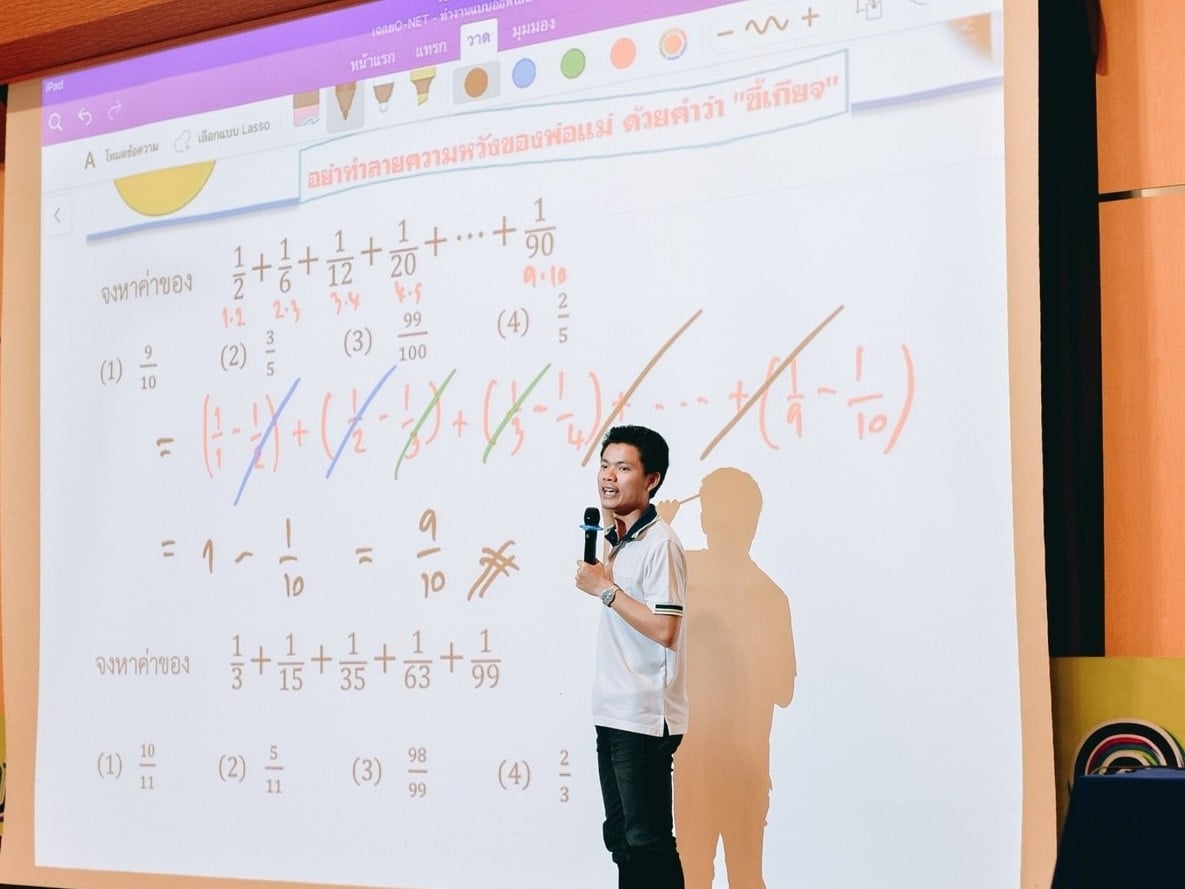 เฉลยO-NET - ทำงานแบบออฟไลน์
iPad
หน้าแรก แทรก วาด มุมมอง
A โหมดข้อความ เลือกแบบ Lasso
อย่าทำลายความหวังของพ่อแม่ ด้วยคำว่า "ขี้เกียจ"
จงหาค่าของ 1/2 + 1/6 + 1/12 + 1/20 + ⋯ + 1/90
1·2 2·3 3·4 4·5 9·10
(1) 9/10 (2) 3/5 (3) 99/100 (4) 2/5
= (1/1 - 1/2) + (1/2 - 1/3) + (1/3 - 1/4) + ---- + (1/9 - 1/10)
= 1 - 1/10 = 9/10 #
จงหาค่าของ 1/3 + 1/15 + 1/35 + 1/63 + 1/99
(1) 10/11 (2) 5/11 (3) 98/99 (4) 2/3